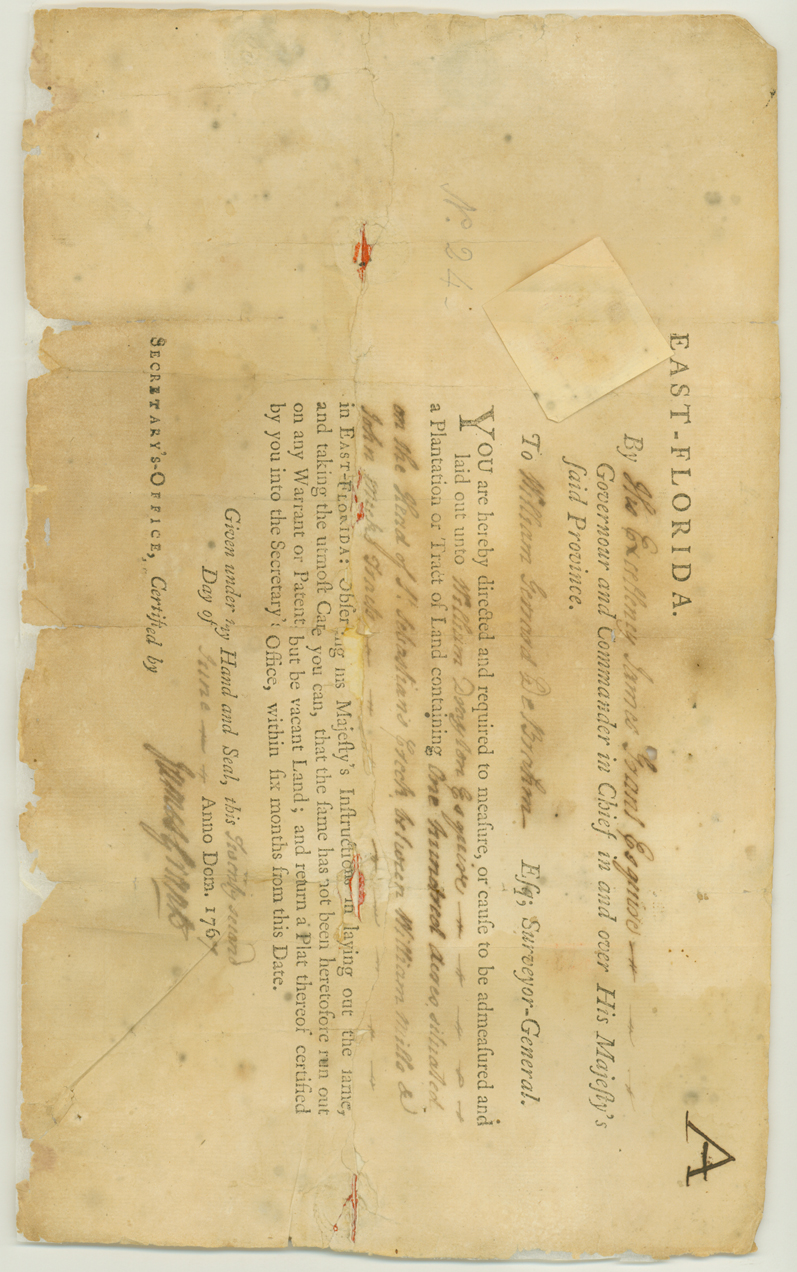 A
EAST-FLORIDA.
By His Excellency James Grant Esquire
Governour and Commander in Chief in and over His Majeſty's
ſaid Province.
To William Gerrard De Brahm Eſq; Surveyor-General.
No. 24.
YOU are hereby directed and required to meaſure, or cauſe to be admeaſured and
laid out unto William Drayton Esquire
a Plantation or Tract of Land containing One hundred acres situated
on the Head of St. Sebastian's Creek between William Mills &
John Tracts
in EAST-FLORIDA: Obſerving his Majeſty's Inſtructions in laying out the ſame,
and taking the utmoſt Care you can, that the ſame has not been heretofore run out
on any Warrant or Patent, but be vacant Land; and return a Plat thereof certified
by you into the Secretary's Office, within ſix months from this Date.
Given under my Hand and Seal, this Twenty second
Day of June Anno Dom. 1767
James Grant
SECRETARY'S-OFFICE, Certified by